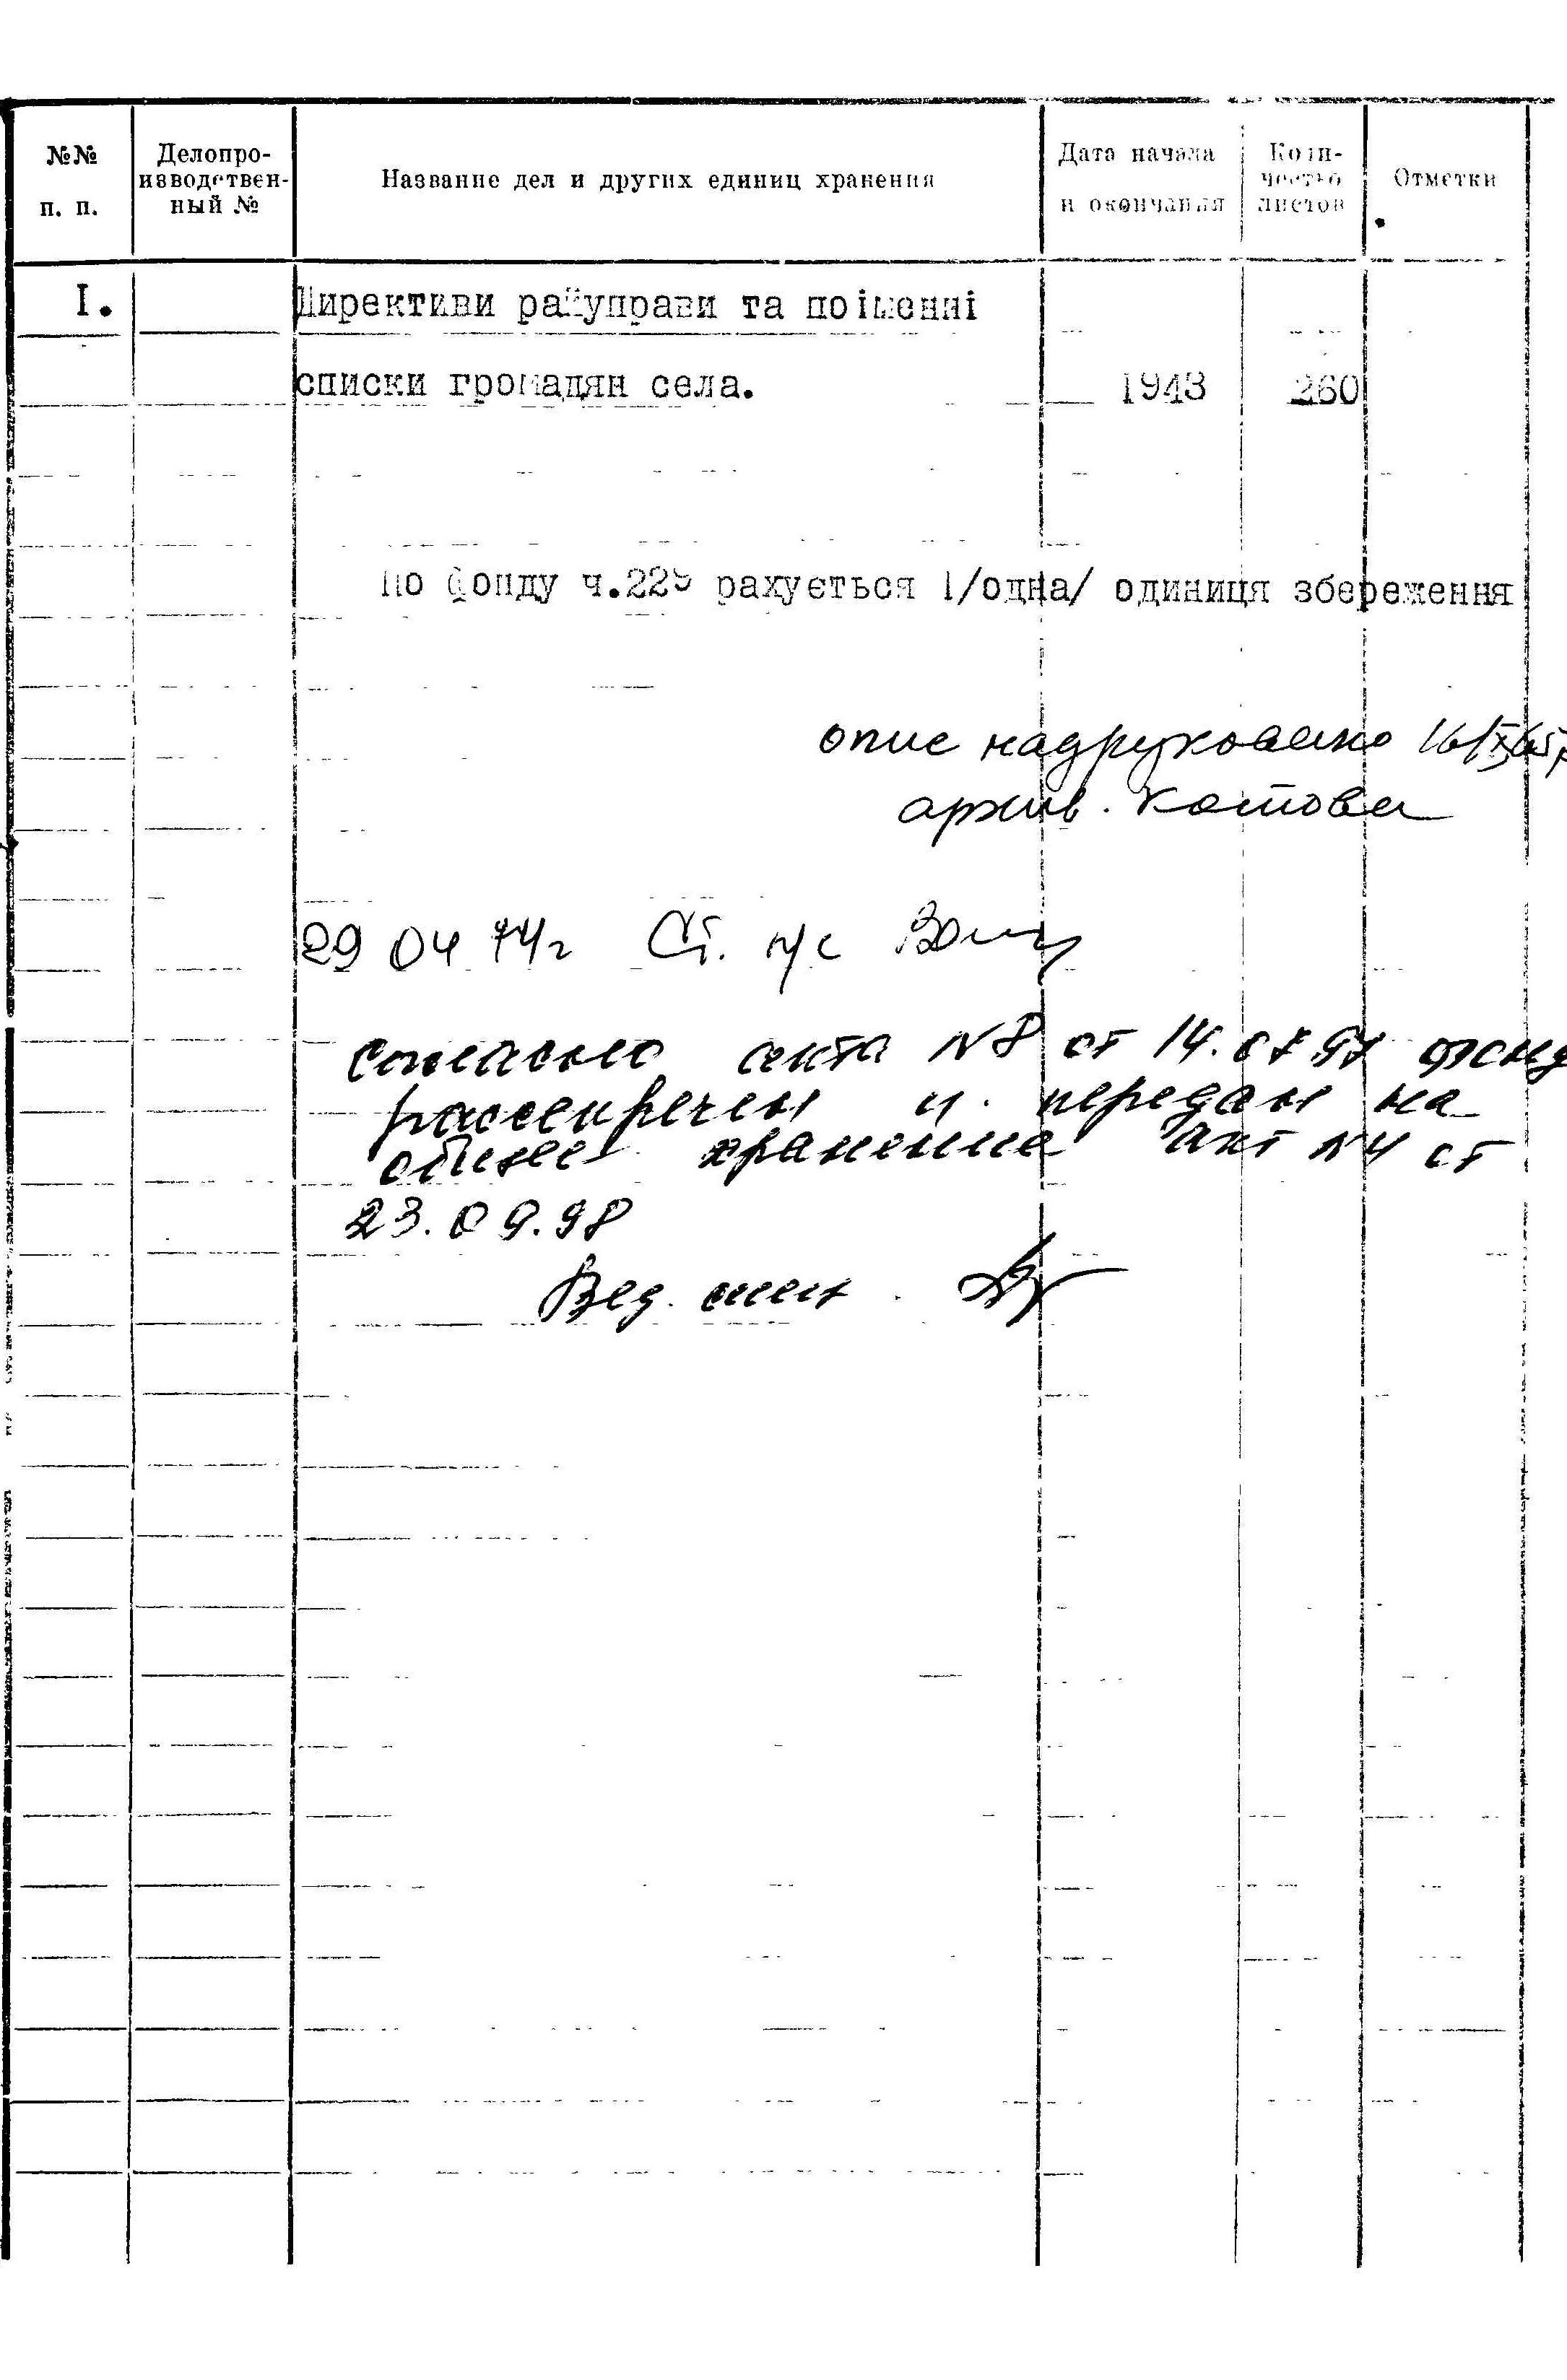 №№ п. п.
Делопро-
изводствен-
ный №
Название дел и других единиц хранения
Дата начала
и окончания
Коли-
чество
листов
Отметки
I.
Директиви райуправи та поіменні
списки громадян села. 1943 260
По фонду ч.229 рахується 1/одна/ одиниця збереження
опис надруковано
архив. Котова
29 04 74г Ст. н/с
Согласно акта №8 от 14.07.97 фонд
рассекречен и передан на
общее хранение акт №4 от
23.09.98
Вед. спец.